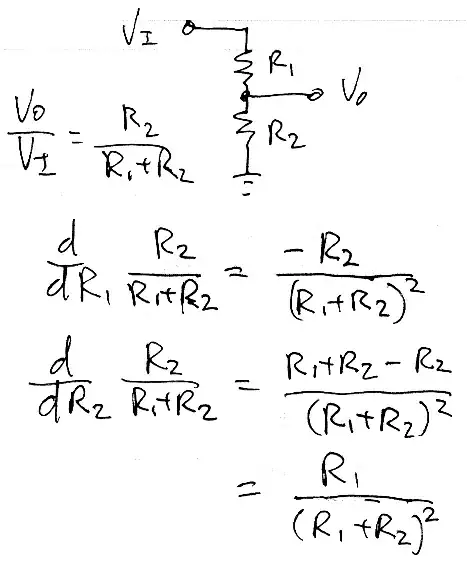 V_I
R_1
V_o
R_2
V_o/V_I = R_2/(R_1+R_2)
d/dR_1 R_2/(R_1+R_2) = -R_2/(R_1+R_2)^2
d/dR_2 R_2/(R_1+R_2) = (R_1+R_2-R_2)/(R_1+R_2)^2
= R_1/(R_1+R_2)^2